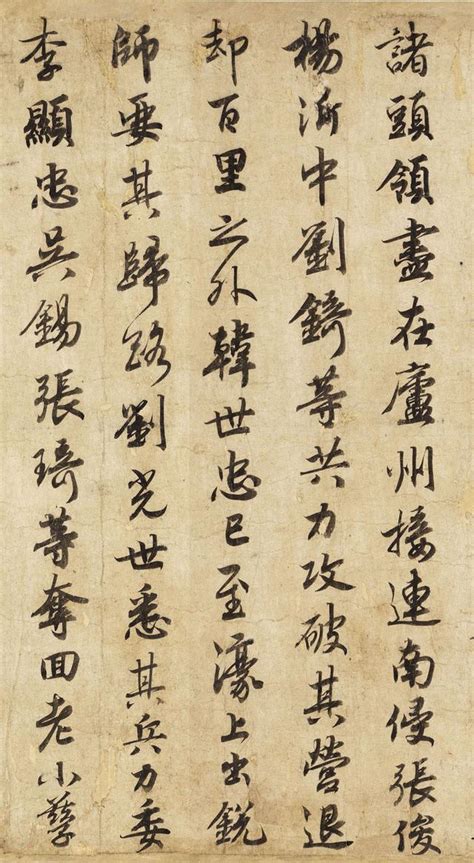 諸頭領盡在廬州接連南侵張俊
楊沂中劉錡等共力攻破其營退
却百里之外韓世忠已至濠上出銳
師要其歸路劉光世悉其兵力委
李顯忠吳錫張琦等奪回老小孳